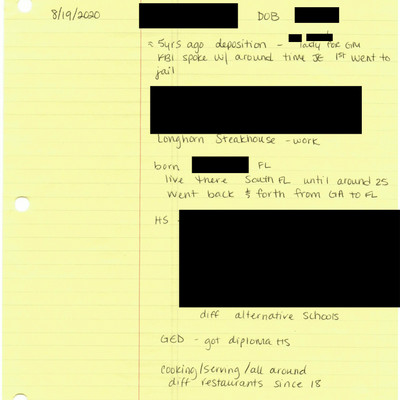 8/19/2020 DOB
≈ 5yrs ago deposition - lady for GM
FBI spoke w/ around time JE 1st went to
jail
Longhorn Steakhouse - work
born FL
live there South FL until around 25
went back & forth from GA to FL
HS -
diff alternative schools
GED - got diploma HS
cooking/serving/all around
diff restaurants since 18